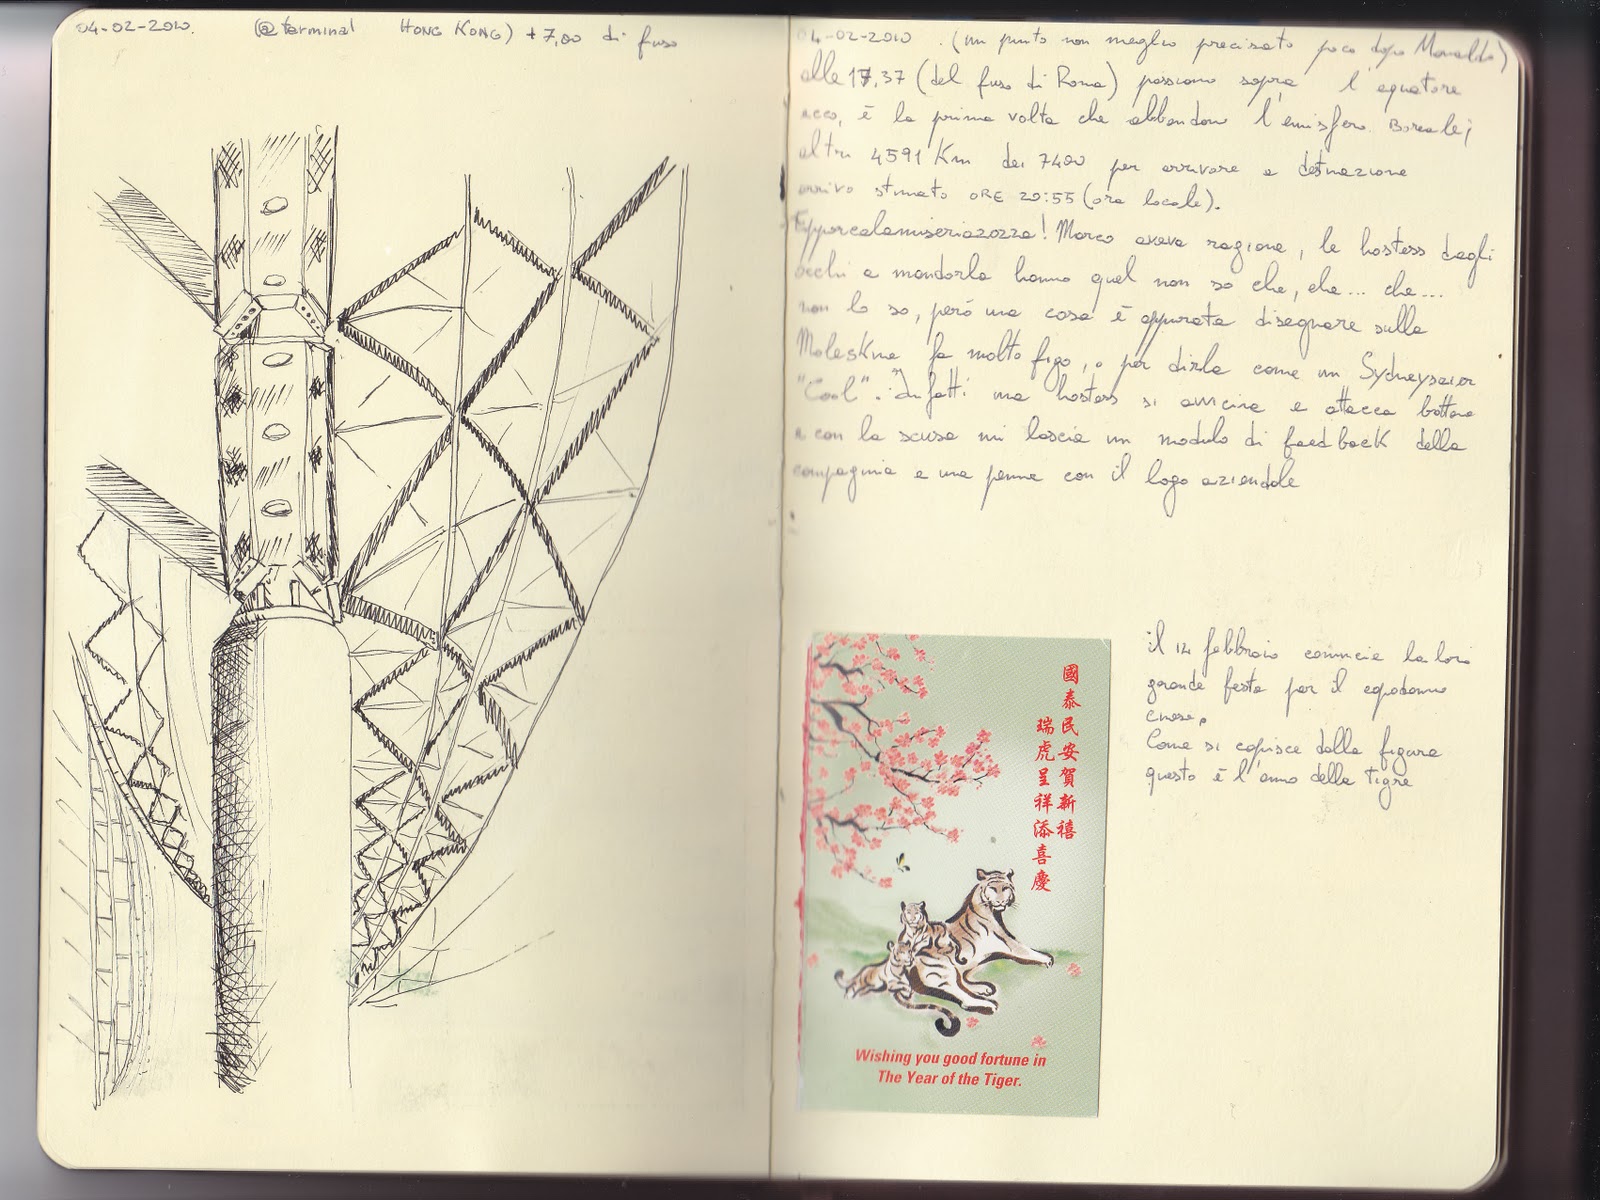 04-02-2010. (@terminal HONG KONG) +7,00 di fuso
04-02-2010. (un punto non meglio precisato poco dopo
alle 17,37 (del fuso di Roma) passiamo sopra l'equatore
ecco, è la prima volta che abbandono l'emisfero Boreale;
altri 4591 Km dei 7400 per arrivare a destinazione
arrivo stimato ORE 20:55 (ora locale).
Epporcalamiseriazozza! Marco aveva ragione, le hostess dagli
occhi a mandorla hanno quel non so che, che... che...
non lo so, però una cosa è appurata disegnare sulla
Moleskine fa molto figo, o per dirla come un
"Cool". Infatti una hostess si avvicina e attacca bottone
e con la scusa mi lascia un modulo di feedback della
compagnia e una penna con il logo aziendale
國泰民安賀新禧
瑞虎呈祥添喜慶
Wishing you good fortune in
The Year of the Tiger.
il 14 febbraio comincia la loro
grande festa per il capodanno
cinese.
Come si capisce dalla figura
questo è l'anno della tigre